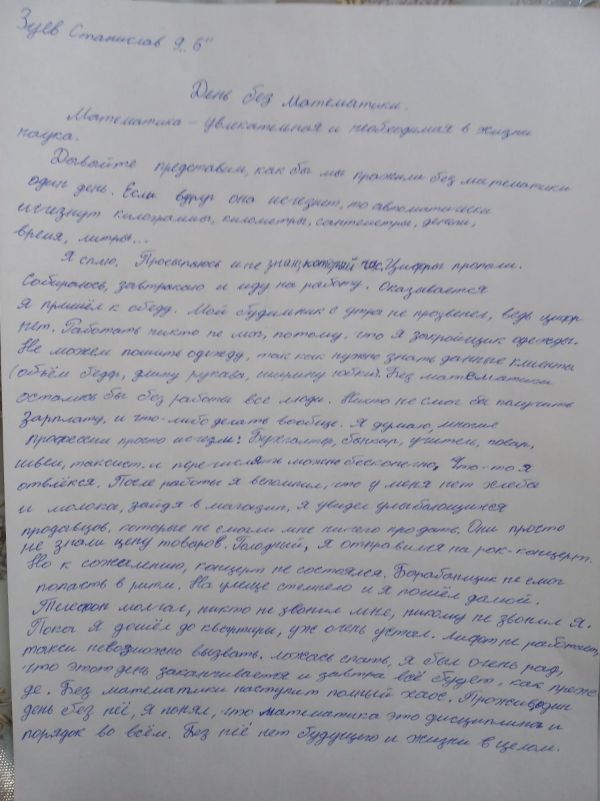 Зуев Станислав 9 "б"
День без математики.
Математика – увлекательная и необходимая в жизни
наука.
Давайте представим, как бы мы прожили без математики
один день. Если вдруг она исчезнет, то автоматически
исчезнут килограммы, километры, сантиметры, деньги,
время, литры...
Я сплю. Просыпаюсь и не знаю который час. Цифры пропали.
Собираюсь, завтракаю и иду на работу. Оказывается
я пришёл к обеду. Мой будильник с утра не прозвенел, ведь цифр
нет. Работать никто не мог, потому, что я закройщик одежды.
Не можем пошить одежду, так как нужно знать данные клиента
(объём бедр, длину рукава, ширину юбки). Без математики
остались бы без работы все люди. Никто не смог бы получить
зарплату, и что-либо делать вообще. Я думаю, многие
профессии просто исчезли: Бухгалтер, банкир, учитель, повар,
швеи, таксист. и перечислять можно бесконечно. Что-то я
отвлёкся. После работы я вспомнил, что у меня нет хлеба
и молока, зайдя в магазин, я увидел улыбающихся
продавцов, которые не смогли мне ничего продать. Они просто
не знали цену товаров. Голодный, я отправился на рок-концерт.
Но к сожалению, концерт не состоялся. Барабанщик не смог
попасть в ритм. На улице стемнело и я пошёл домой.
Телефон молчал, никто не звонил мне, никому не звонил я.
Пока я дошёл до квартиры, уж очень устал. Лифт не работает,
такси невозможно вызвать. Ложась спать, я был очень рад,
что этот день заканчивается и завтра всё будет, как преж
де. Без математики наступит полный хаос. Прожив один
день без неё, я понял, что математика это дисциплина и
порядок во всём. Без неё нет будущего и жизни в целом.